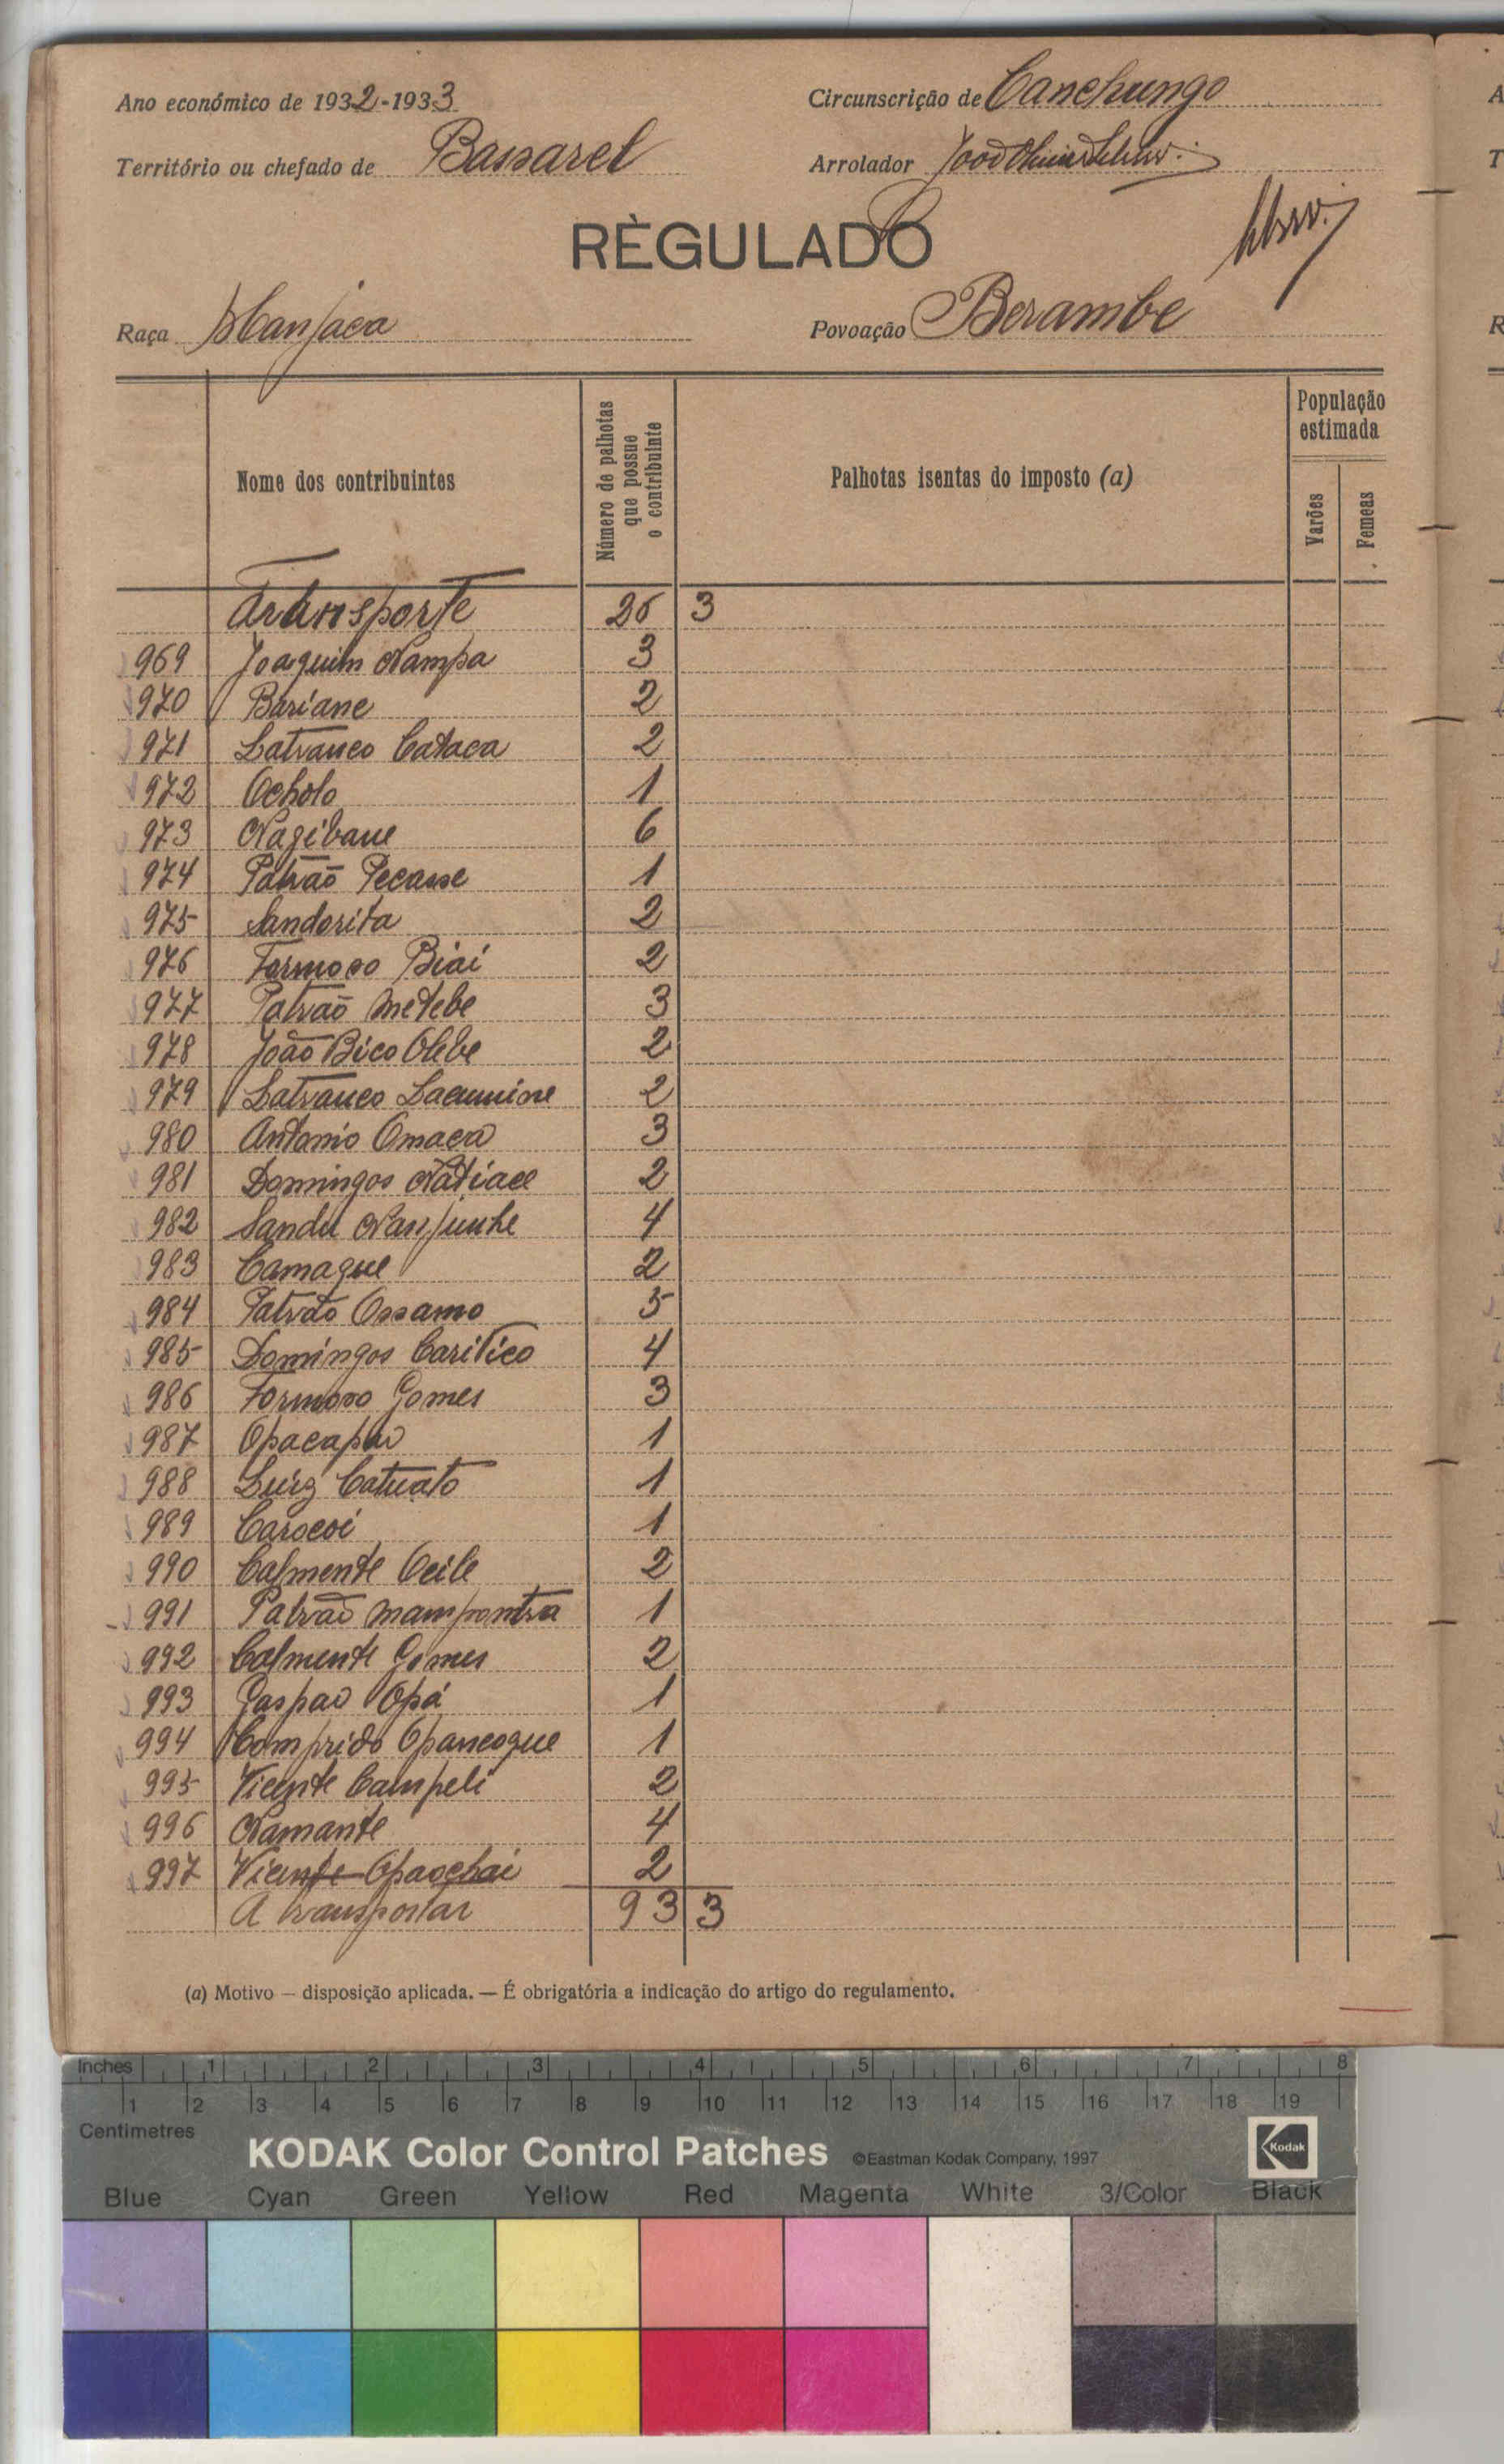 Ano económico de 1932-1933
Circunscrição de Canchungo
Território ou chefado de Bassarel
Arrolador
RÈGULADO
Raça Manjaca
Povoação Berambe
Nome dos contribuintes
Número de palhotas que possue o contribuinte
Palhotas isentas do imposto (a)
População estimada
Varões
Femeas
Transporte 26 3
969 Joaquim Nampa 3
970 Bariane 2
971 Latranco Cataca 2
972 Ocholo 1
973 Nagibane 6
974 Patrão Pecasse 1
975 Sandorita 2
976 Formoso Biai 2
977 Patrão Metebe 3
978 João Bico Olebe 2
979 Latranco Lacunine 2
980 Antonio Omaca 3
981 Domingos Natiace 2
982 Sandu Nanjunhe 4
983 Camaque 2
984 Patrão Ossamo 5
985 Domingos Caritico 4
986 Formoso Gomes 3
987 Opacapar 1
988 Luiz Catuato 1
989 Carocoi 1
990 Calmente Ocile 2
991 Patrão Mampontra 1
992 Calmente Gomes 2
993 Gaspar Opá 1
994 Comprido Opancoque 1
995 Vicente Campeli 2
996 Namante 4
997 Vicente Opaochai 2
A transportar 93 3
(a) Motivo — disposição aplicada. — É obrigatória a indicação do artigo do regulamento.
Inches 1 2 3 4 5 6 7 8
1 2 3 4 5 6 7 8 9 10 11 12 13 14 15 16 17 18 19
Centimetres
KODAK Color Control Patches ©Eastman Kodak Company, 1997 Kodak
Blue Cyan Green Yellow Red Magenta White 3/Color Black